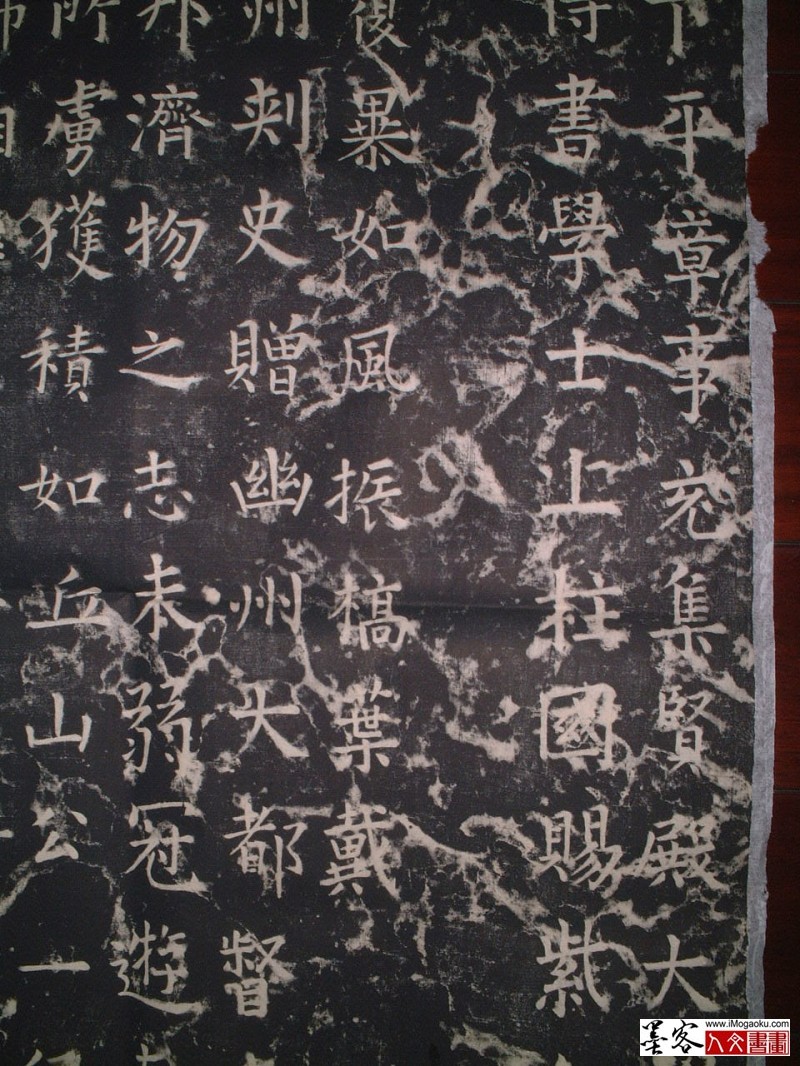 下平章事充集賢殿大
書學士上柱國賜紫
暴如風振槁葉戴
州刺史贈幽州大都督
邦濟物之志未弱冠遊
所虜獲積如丘山公一
墨客
www.iMogaoku.com
人文書畫